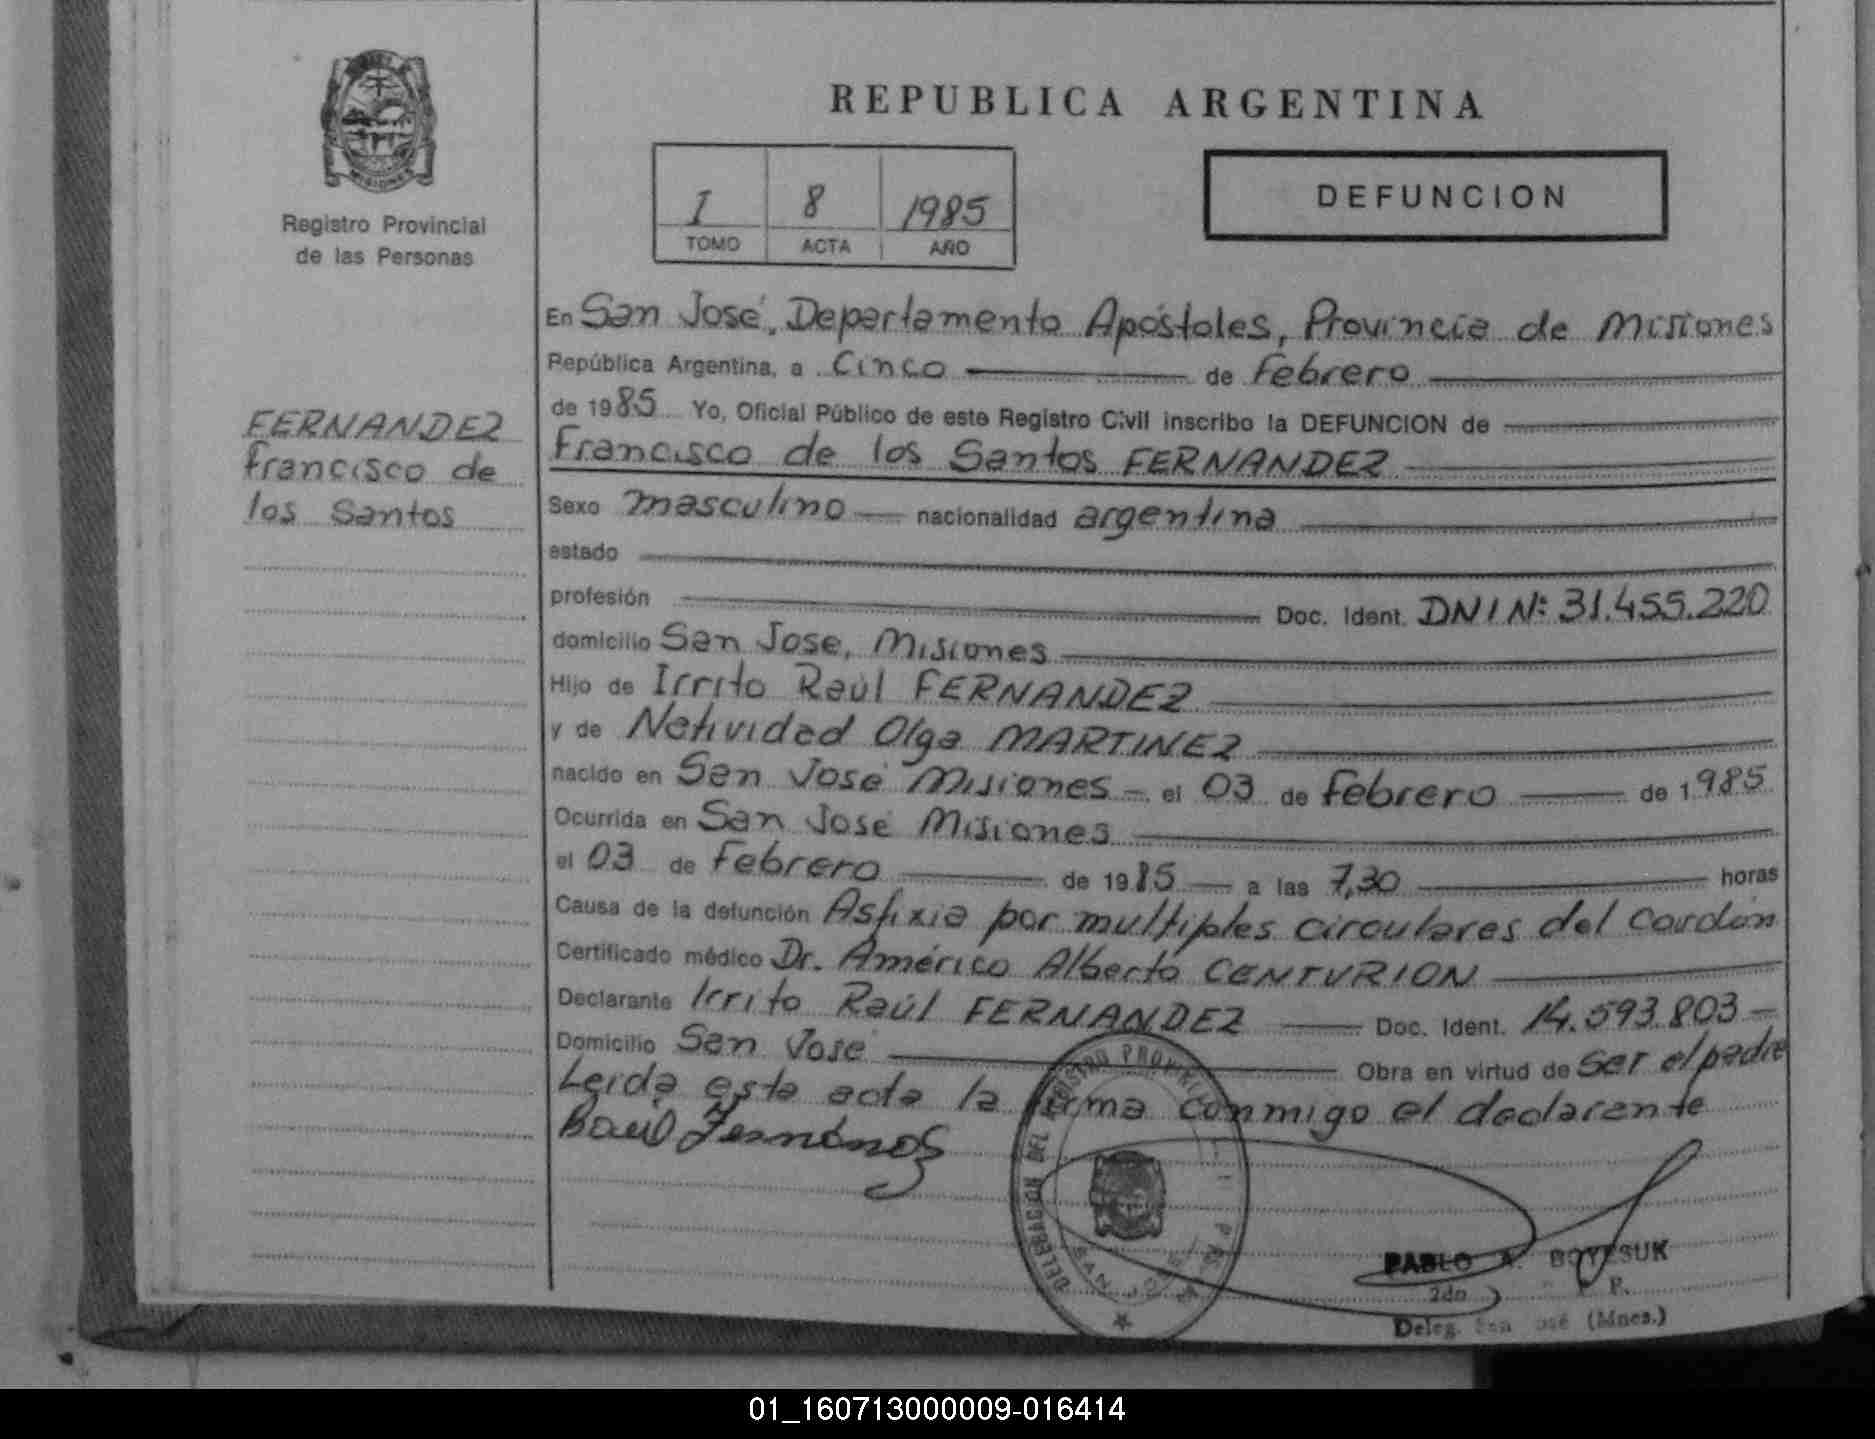 MISIONES
Registro Provincial
de las Personas
REPUBLICA ARGENTINA
I 8 1985
TOMO ACTA AÑO
DEFUNCION
FERNANDEZ
Francisco de
los Santos
En San José, Departamento Apóstoles, Provincia de Misiones
República Argentina, a Cinco de Febrero
de 1985 Yo, Oficial Público de este Registro Civil inscribo la DEFUNCION de
Francisco de los Santos FERNANDEZ
Sexo masculino nacionalidad argentina
estado
profesión Doc. Ident. DNI Nº 31.455.220
domicilio San Jose, Misiones
Hijo de Irrito Raúl FERNANDEZ
y de Natividad Olga MARTINEZ
nacido en San José Misiones - el 03 de Febrero de 1985
Ocurrida en San José Misiones
el 03 de Febrero de 1985 a las 7,30 horas
Causa de la defunción Asfixia por multiples circulares del cordón
Certificado médico Dr. Américo Alberto CENTURION
Declarante Irrito Raúl FERNANDEZ Doc. Ident. 14.593.803 -
Domicilio San José Obra en virtud de ser el padre
Leida esta acta la firma conmigo el declarente
Raúl Fernández
DELEGACION DEL REGISTRO PROVINCIAL
SAN JOSE
PABLO A. BOYESUK
2do P.
Deleg. San José (Mnes.)
01_160713000009-016414